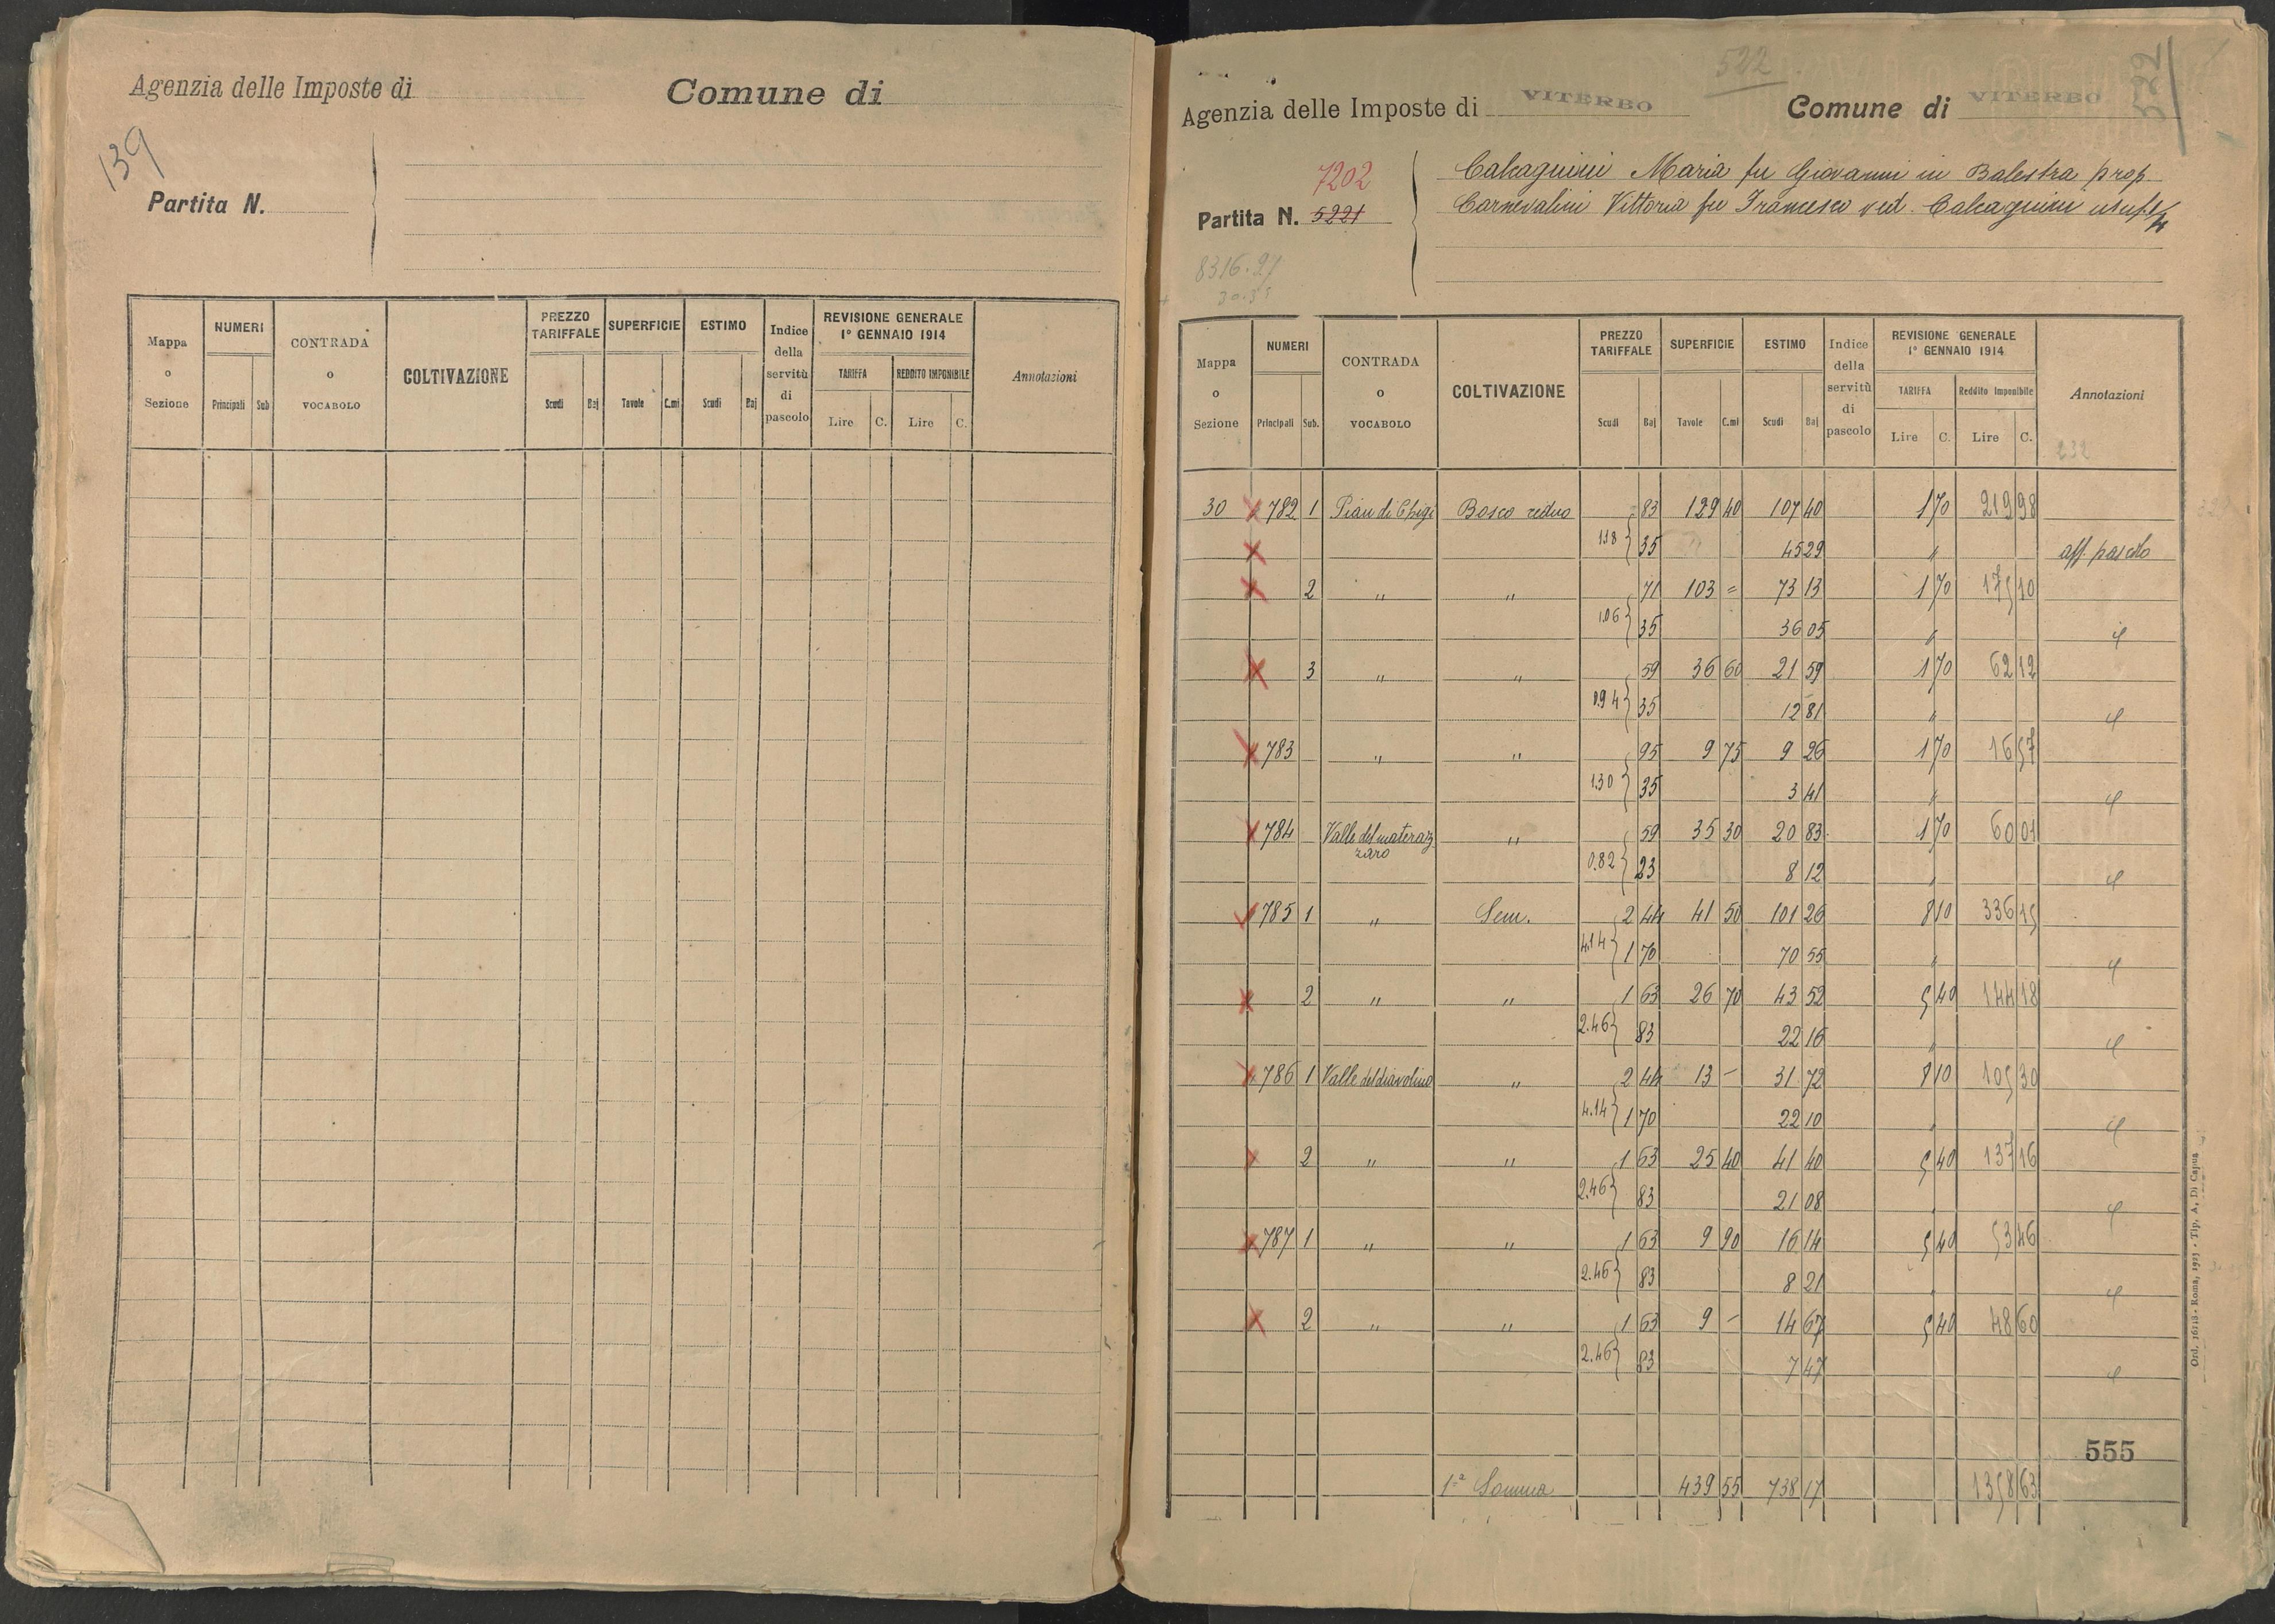 Agenzia delle Imposte di Comune di
139
Partita N.
Mappa o Sezione NUMERI Principali Sub CONTRADA o VOCABOLO COLTIVAZIONE PREZZO TARIFFALE Scudi Baj SUPERFICIE Tavole C.mi ESTIMO Scudi Baj Indice della servitù di pascolo REVISIONE GENERALE 1° GENNAIO 1914 TARIFFA Lire C. REDDITO IMPONIBILE Lire C. Annotazioni
522
522
Agenzia delle Imposte di VITERBO Comune di VITERBO
7202
Partita N. 5221
8316.21
30.35
Calcagnini Maria fu Giovanni in Balestra prop.
Carnevalini Vittoria fu Francesco ved. Calcagnini usuf. 1/4
Mappa o Sezione NUMERI Principali Sub. CONTRADA o VOCABOLO COLTIVAZIONE PREZZO TARIFFALE Scudi Baj SUPERFICIE Tavole C.mi ESTIMO Scudi Baj Indice della servitù di pascolo REVISIONE GENERALE 1° GENNAIO 1914 TARIFFA Lire C. Reddito Imponibile Lire C. Annotazioni
232
30 782 1 Pian di Chigi Bosco ceduo 83 129 40 107 40 1 70 219 98
1.18 } 35 45 29 " aff. pascolo
2 " " 71 103 = 73 13 1 70 175 10
1.06 } 35 36 05 "
3 " " 59 36 60 21 59 1 70 62 12
0.94 } 35 12 81 "
783 " " 95 9 75 9 26 1 70 16 57
1.30 } 35 3 41 "
784 Valle del materaz zaro " 59 35 30 20 83 1 70 60 01
0.82 } 23 8 12 "
785 1 " Sem. 2 44 41 50 101 26 8 10 336 15
4.14 } 1 70 70 55 "
2 " " 1 63 26 70 43 52 5 40 144 18
2.46 } 83 22 16 "
786 1 Valle del diavolino " 2 44 13 — 31 72 8 10 105 30
4.14 } 1 70 22 10 "
2 " " 1 63 25 40 41 40 5 40 137 16
2.46 } 83 21 08 "
787 1 " " 1 63 9 90 16 14 5 40 53 46
2.46 } 83 8 21 "
2 " " 1 63 9 — 14 67 5 40 48 60
2.46 } 83 7 47
555
1ª Somma 439 55 738 17 1358 63
Ord. 36118 - Roma, 1923 - Tip. A. Di Capua